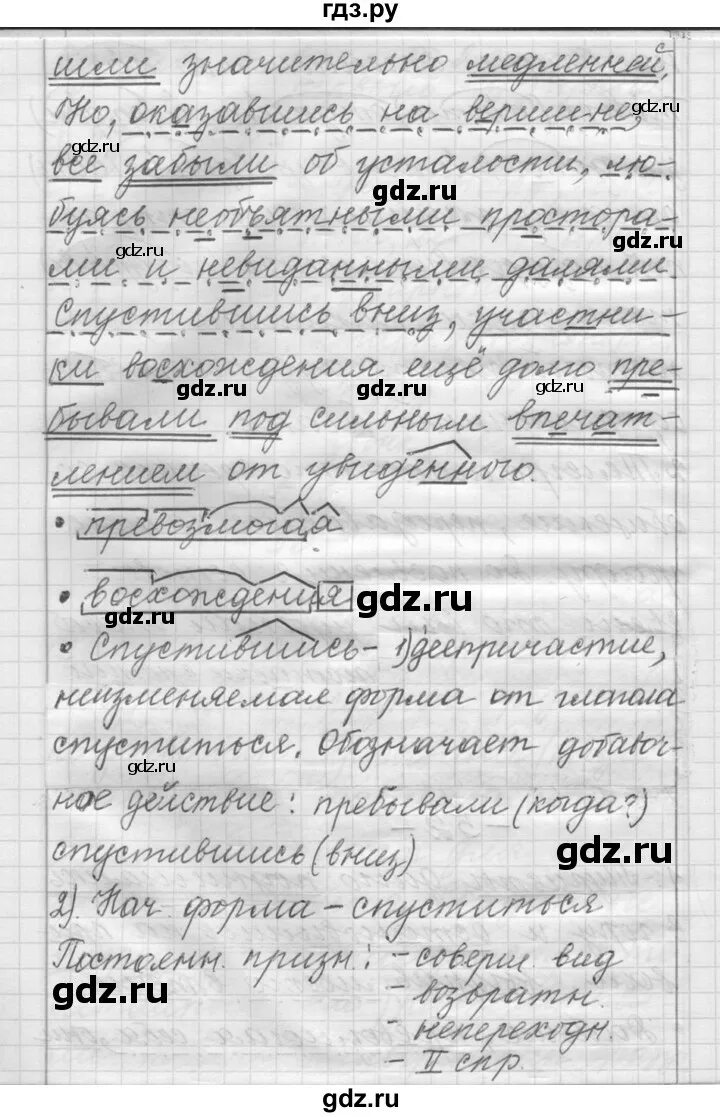 гдз.ру
шли значительно медленней,
Но, оказавшись на вершине,
все забыли об усталости, лю-
gdz.ru
gdz.ru
gdz.ru
буясь необъятными простора-
gdz.ru
gdz.ru
ми и невиданными далями.
gdz.ru
Спустившись вниз, участни-
gdz.ru
gdz.ru
ки восхождения ещё долго пре-
gdz.ru
gdz.ru
gdz.ru
бывали под сильным впечат-
лением от увиденного.
• превозмогая
• восхождения
gdz.ru
gdz.ru
• Спустившись - 1) деепричастие,
неизменяемая форма от глагола
спуститься. Обозначает добавоч-
gdz.ru
ное действие: пребывали (когда?)
спустившись (вниз)
gdz.ru
2). Нач. форма – спуститься
Постоянн. призн.: - соверш. вид
gdz.ru
- возвратн.
- непереходн.
gdz.ru
- II спр.
gdz.ru